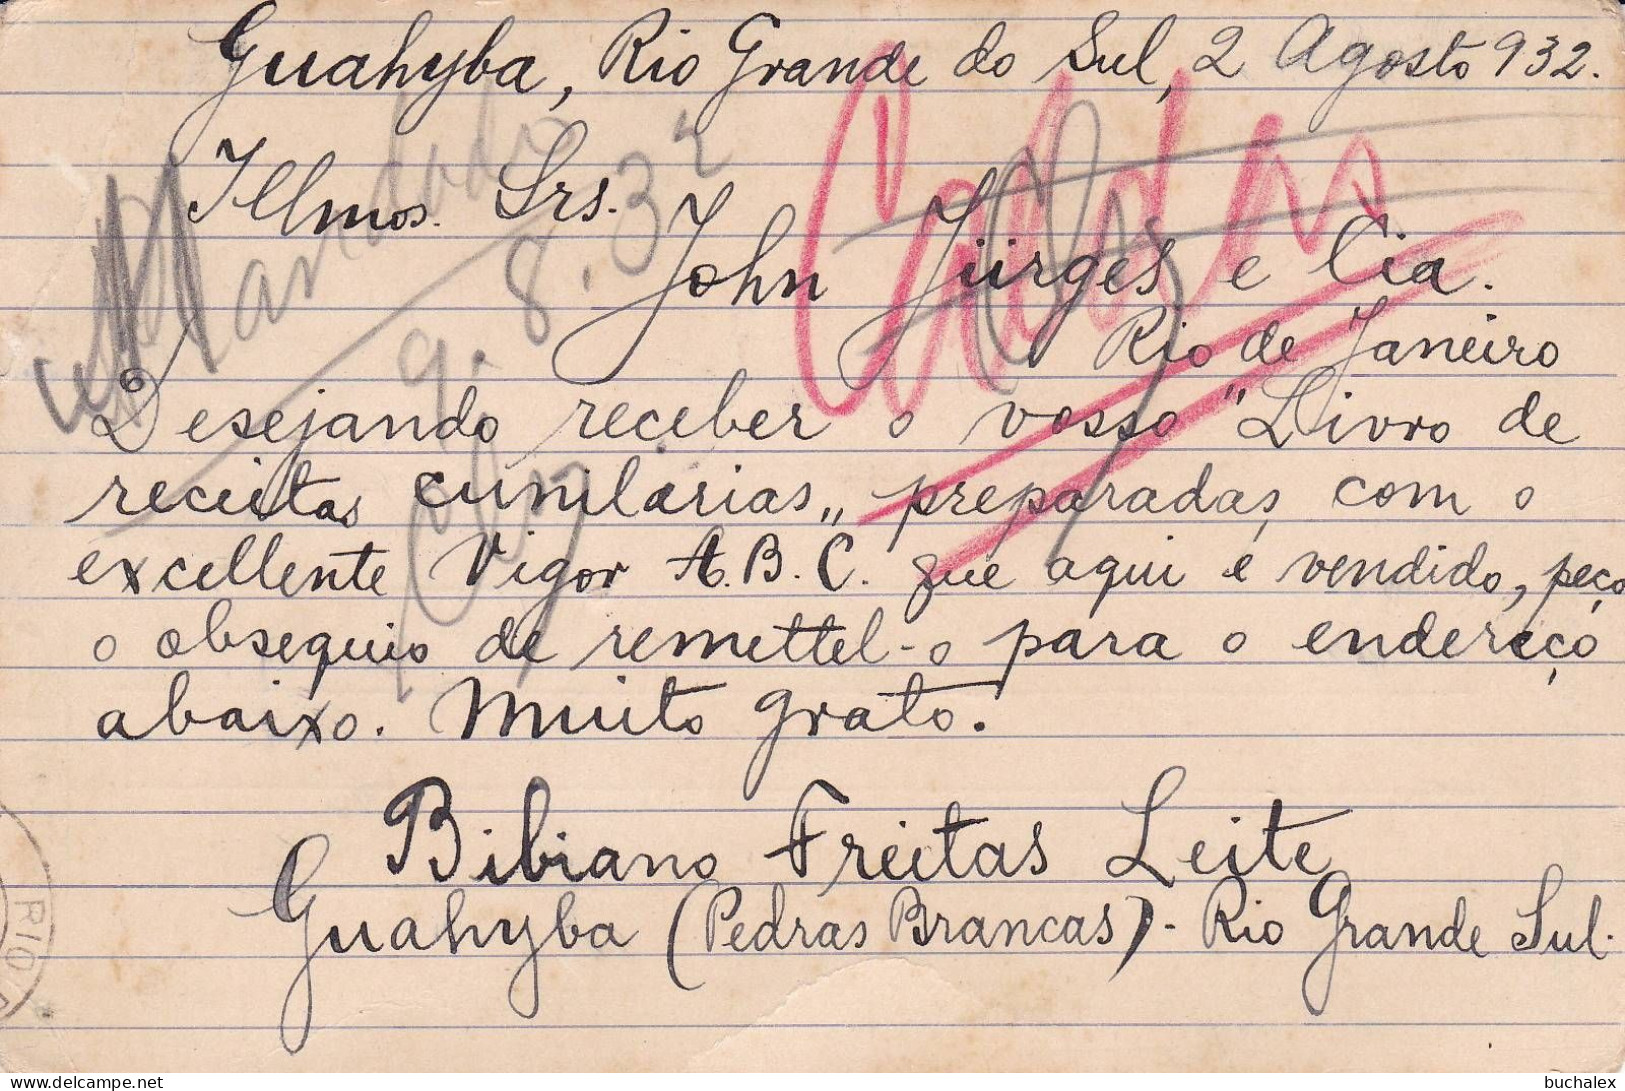 Guahyba, Rio Grande do Sul, 2 Agosto 932.
Illmos. Srs.
John Jürges e Cia.
Rio de Janeiro
Desejando receber o vosso "Livro de
receitas cunilarias„ preparadas com o
excellente Vigor A.B.C. que aqui é vendido, peço
o obsequio de remettel-o para o endereço
abaixo. Muito grato.
Bibiano Freitas Leite
Guahyba (Pedras Brancas) - Rio Grande Sul.
Mandado
9.8.32
RIO
buchalex